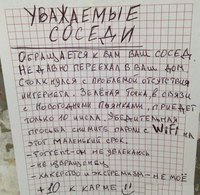 УВАЖАЕМЫЕ
СОСЕДИ
ОБРАЩАЕТСЯ К ВАМ ВАШ СОСЕД.
НЕ ДАВНО ПЕРЕЕХАЛ В ВАШ ДОМ.
СТОЛКНУЛСЯ С ПРОБЛЕМОЙ ОТСУТСТВИЯ
ИНТЕРНЕТА. ЗЕЛЁНАЯ ТОЧКА, В СВЯЗИ
С НОВОГОДНИМИ ПЬЯНКАМИ, ПРИЕДЕТ
ТОЛЬКО 10 ЧИСЛА. УБЕДИТЕЛЬНАЯ
ПРОСЬБА СНИМИТЕ ПАРОЛЬ С WiFi НА
ЭТОТ МАЛЕНЬКИЙ СРОК.
- ТОРРЕНТ-ОМ НЕ УВЛЕКАЮСЬ
- НЕ ИЗВРАЩЕНЕЦ
- ХАКЕРСТВО И ЭКСТРЕМИЗМ - НЕ МОЁ
+10 К КАРМЕ !!